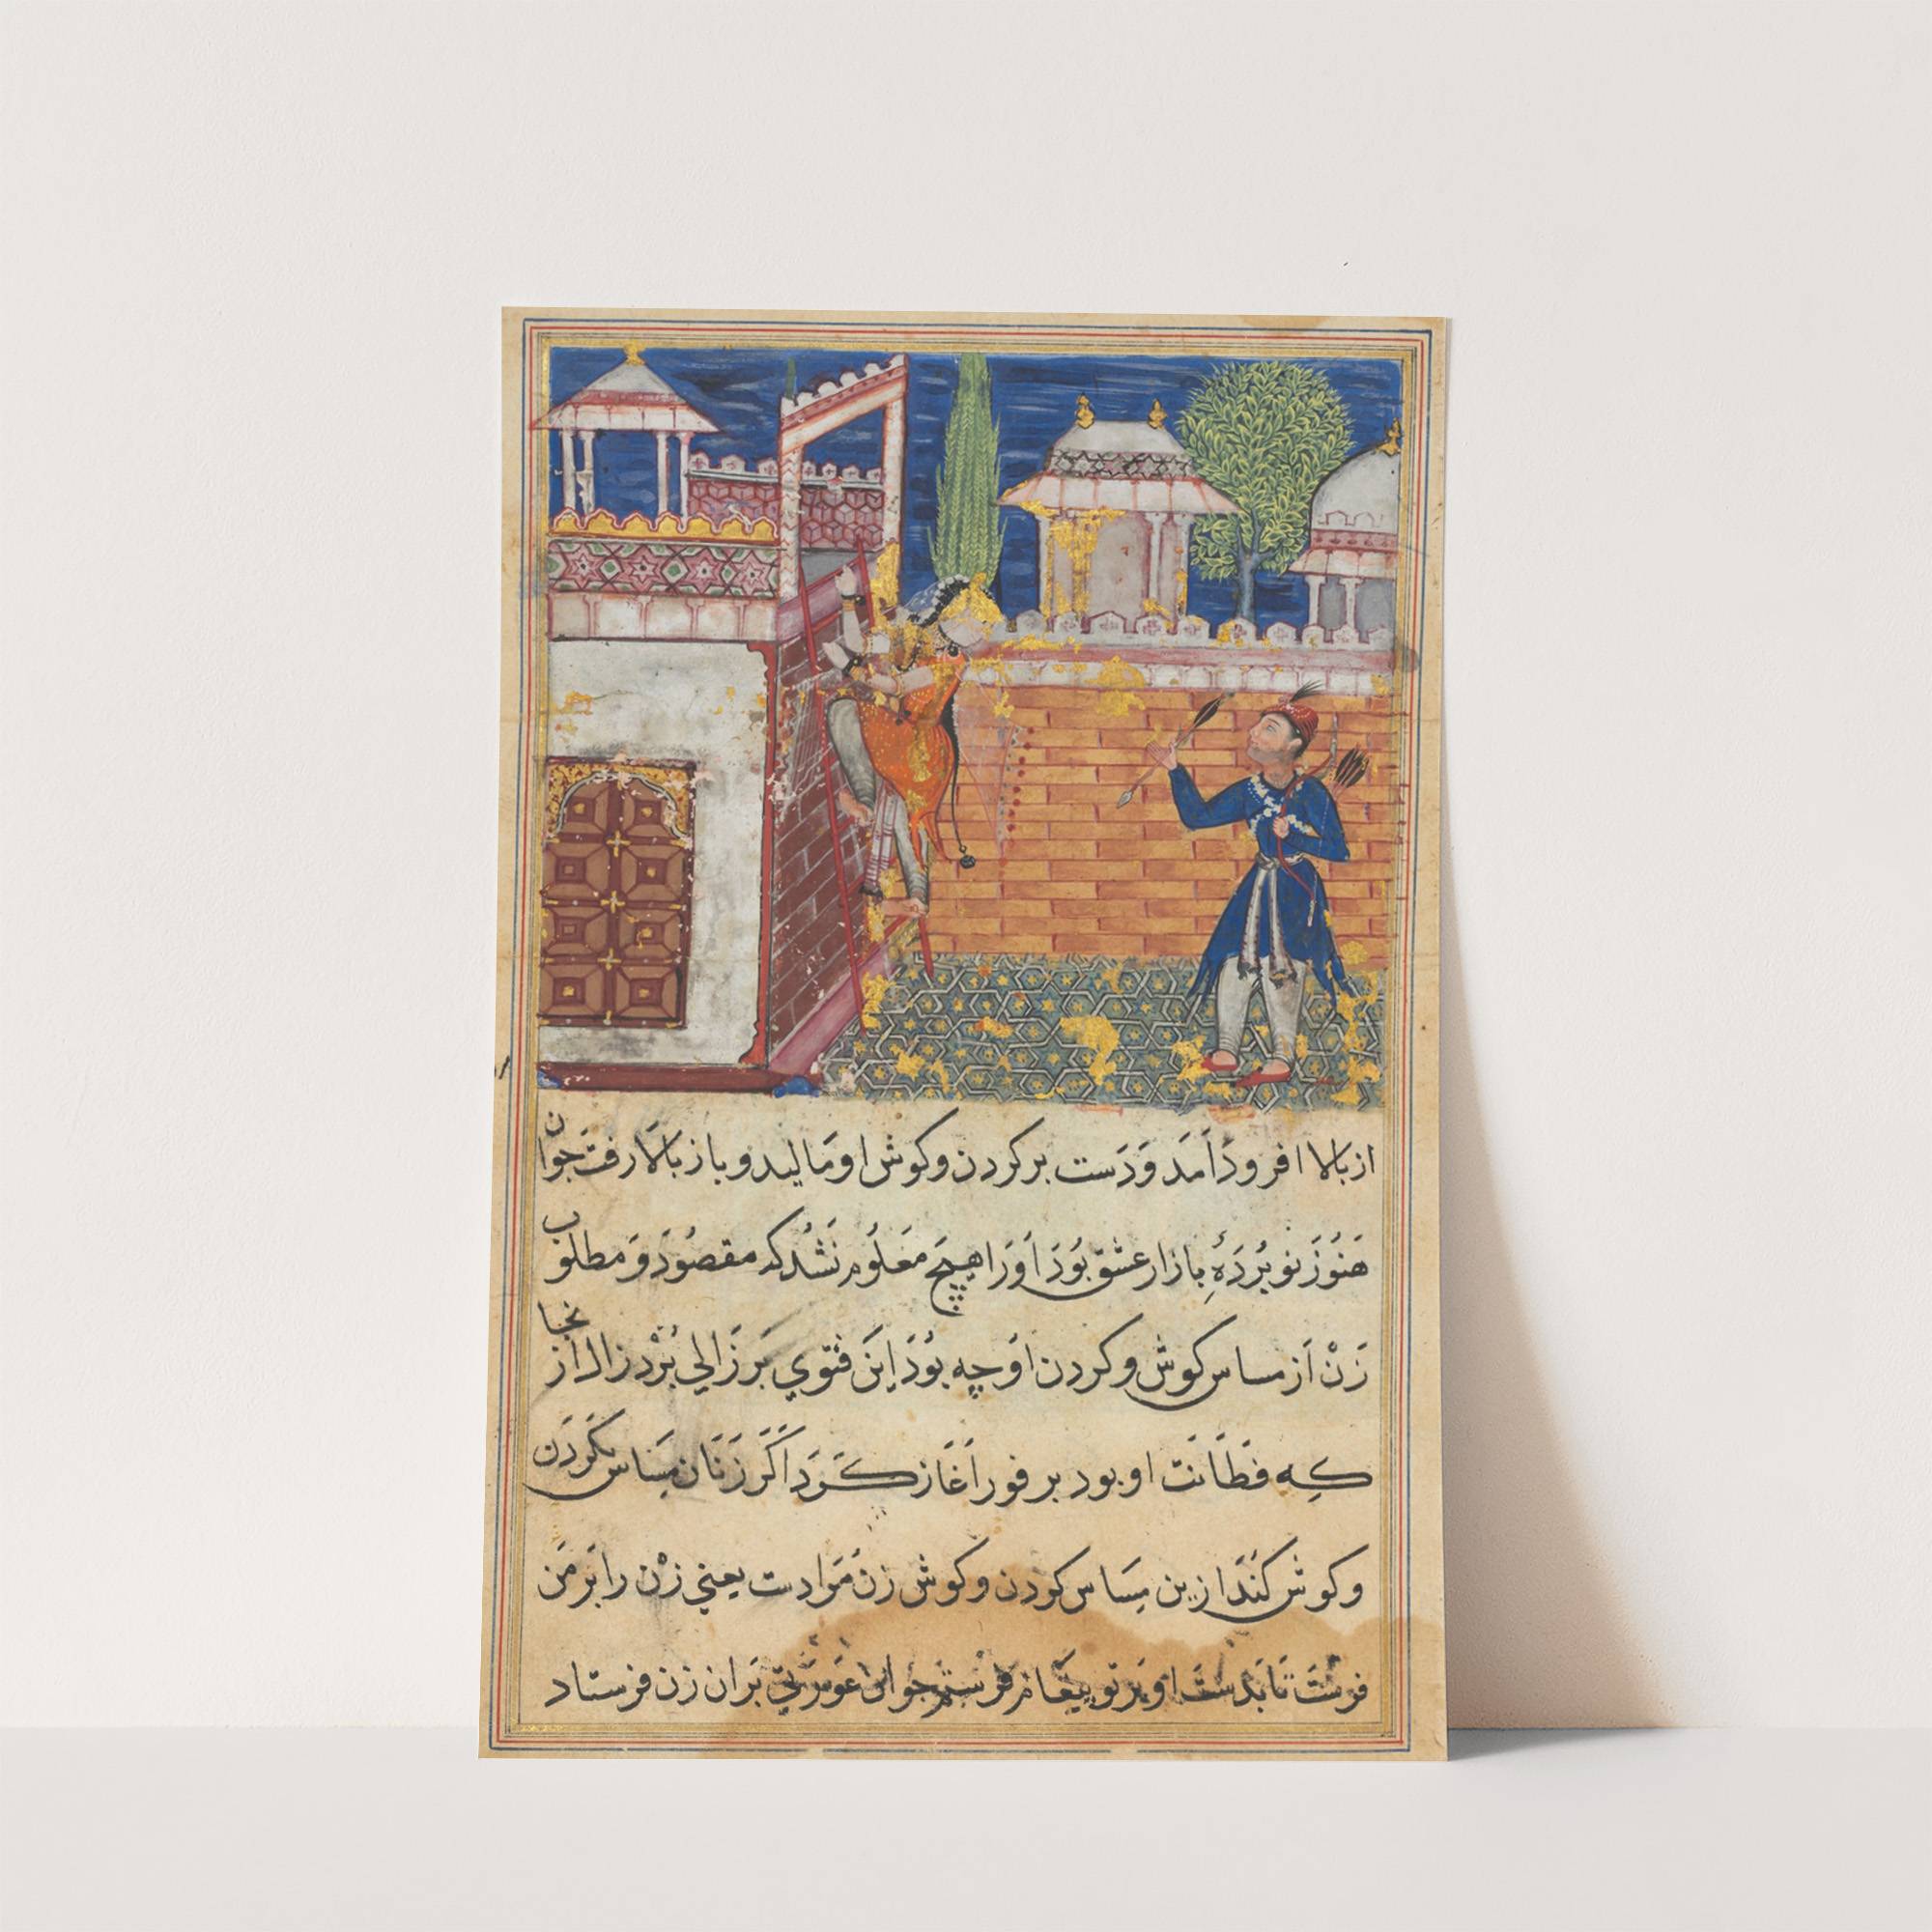 از بالا افرود اَمَد وَ دَست بر کردن و کوش او مالید و باز بالا رفت جوان
هَنُوز نو بُردَهِٔ بازار عشق بُود اَو را هیچ مَعلُوم نَشُد که مقصُود وَ مطلوب
زَنْ اَز مساس کوش و کردن او چه بُود اینَ فتوي بَر زالي بُرْد زال از انجا
کِه فطانت او بود بر فور اَغاز کَرد اَکَر زَنان مِساس بکَردَن
و کوش کنَند ازین مِساس کودن و کوش زن مُوادست یعني زنْ را بَر مَن
فرست تا بَدست او بَر تو پیغام فرستم جوان عَورَتي بَران زن فرستاد